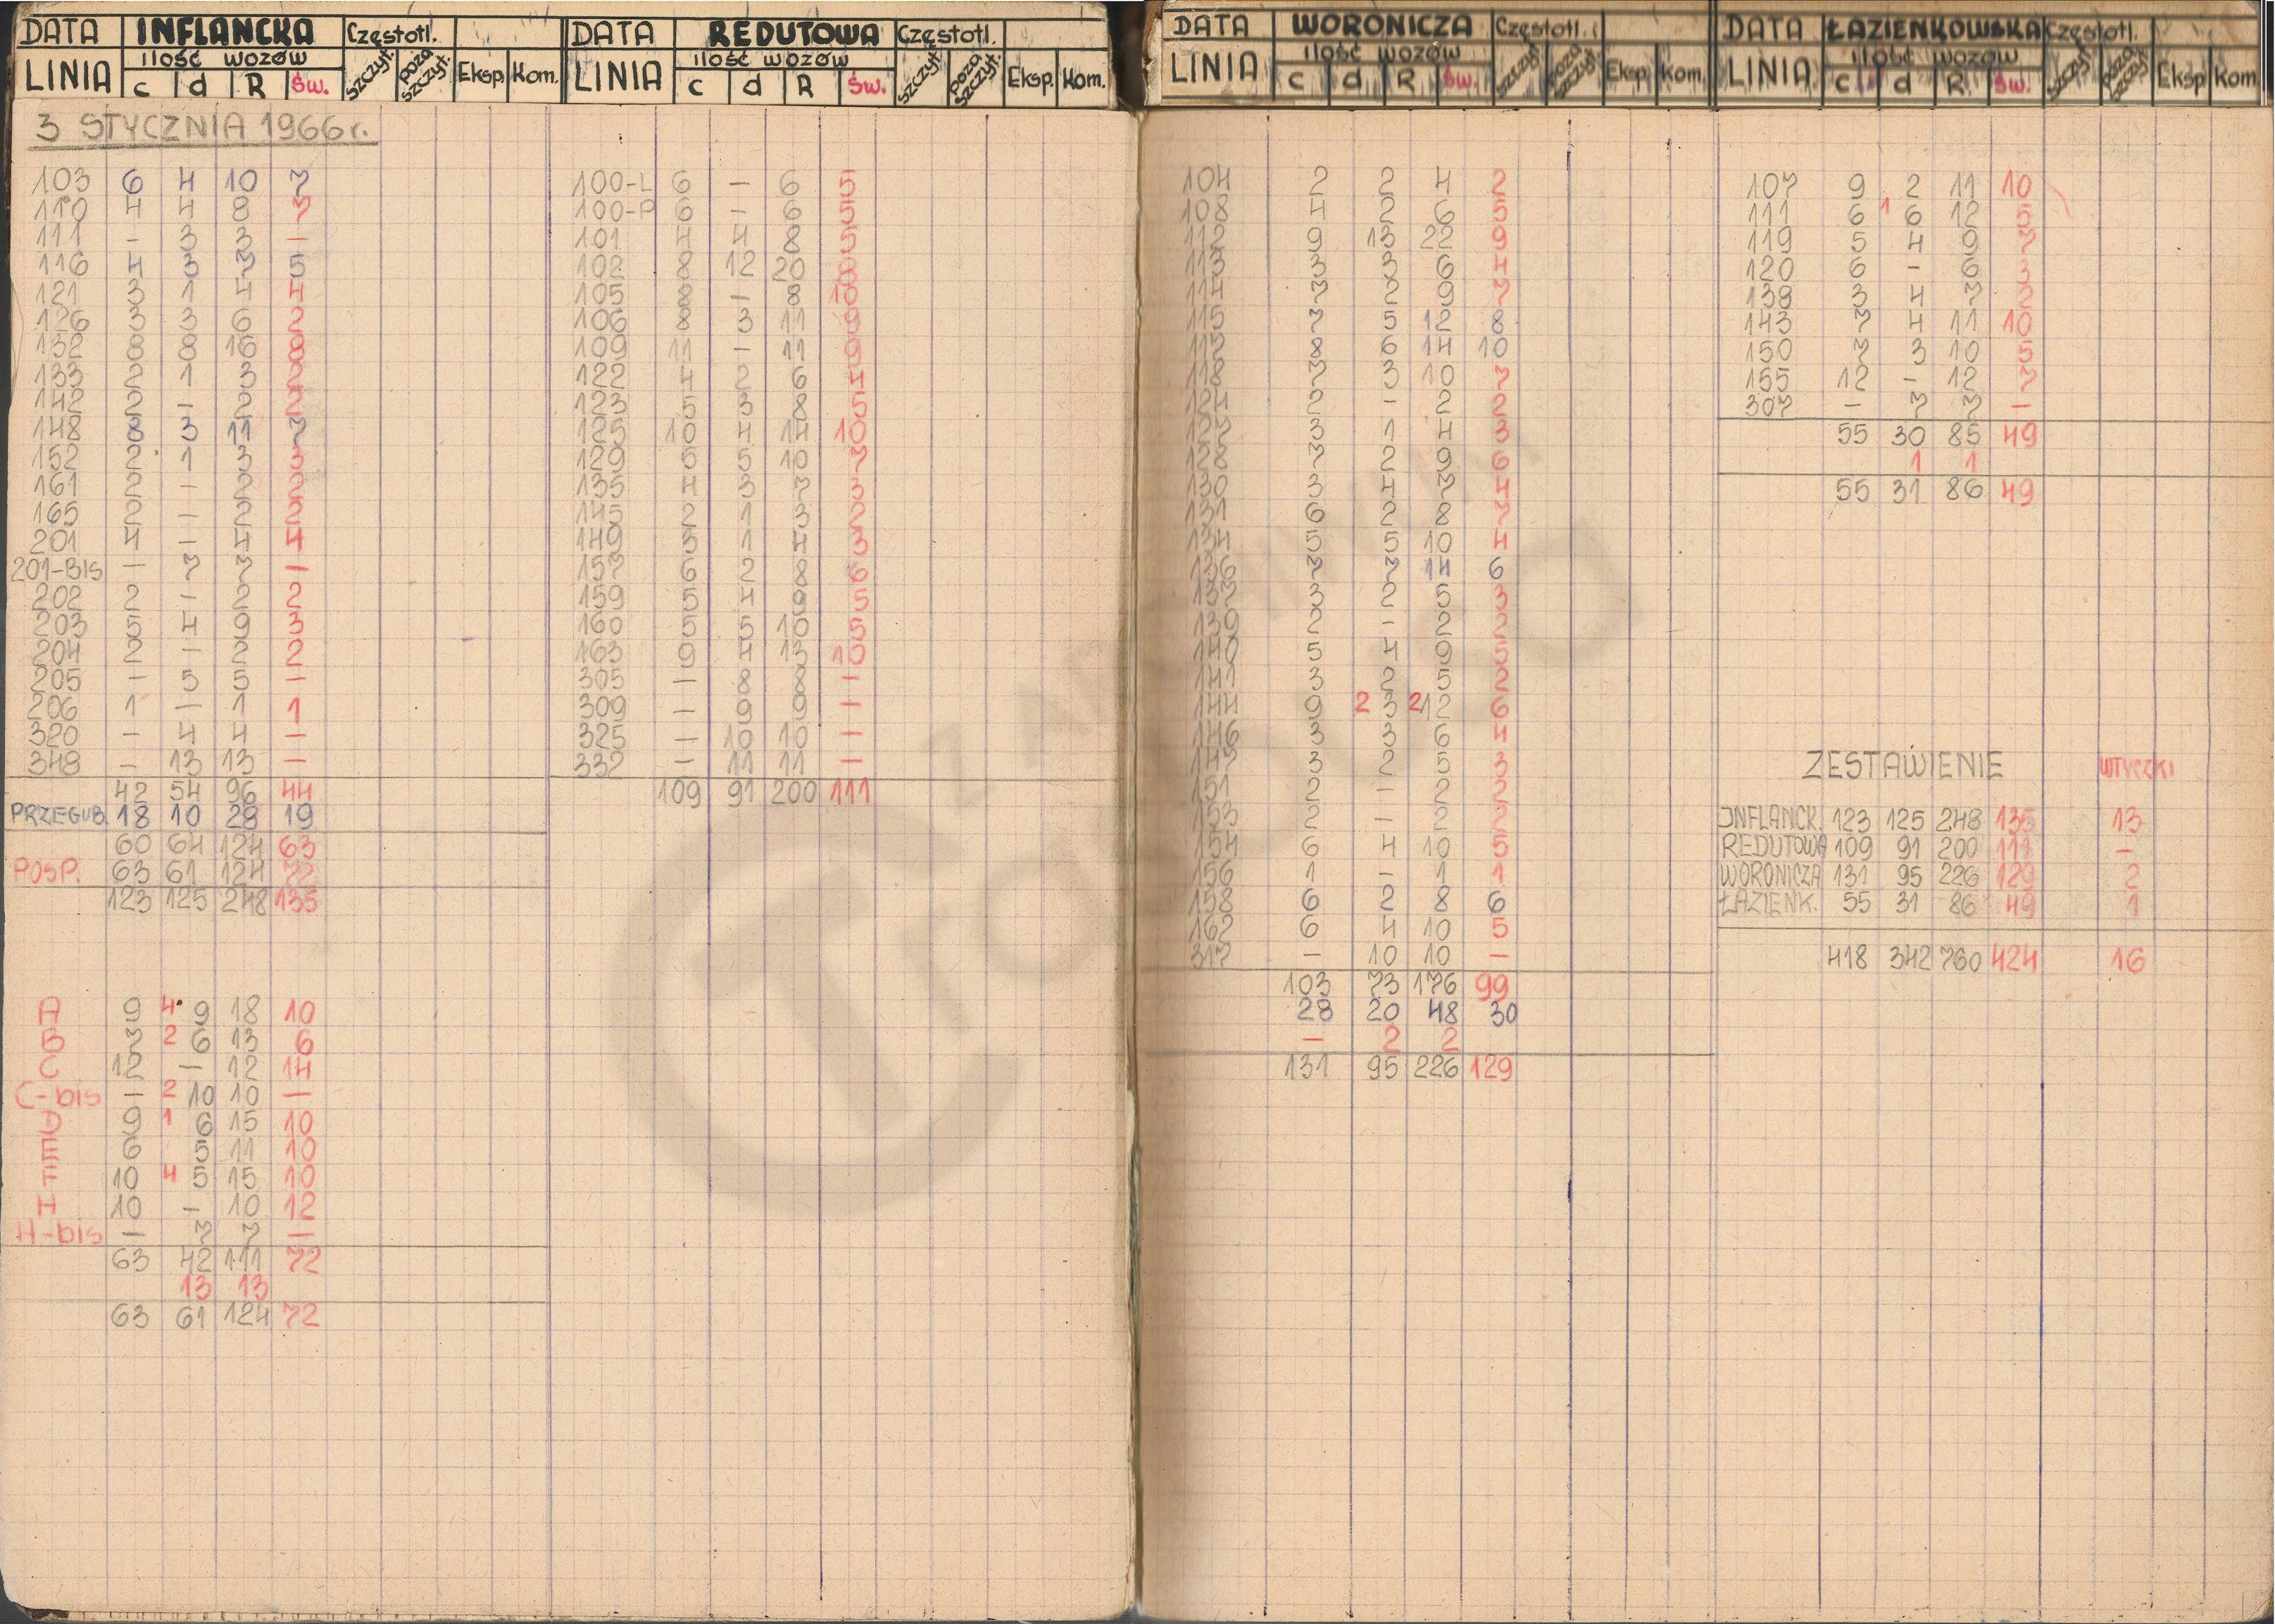 DATA INFLANCKA Częstotl.
LINIA ilość wozów c d R Św. szczyt. poza szczyt. Eksp. Kom.
3 STYCZNIA 1966 r.
103 6 4 10 7
110 4 4 8 7
111 - 3 3 -
116 4 3 7 5
121 3 1 4 4
126 3 3 6 2
132 8 8 16 8
133 2 1 3 2
142 2 - 2 2
148 8 3 11 7
152 2 1 3 3
161 2 - 2 2
165 2 - 2 2
201 4 - 4 4
201-BIS - 7 7 -
202 2 - 2 2
203 5 4 9 3
204 2 - 2 2
205 - 5 5 -
206 1 - 1 1
320 - 4 4 -
348 - 13 13 -
42 54 96 44
PRZEGUB. 18 10 28 19
60 64 124 63
POSP. 63 61 124 72
123 125 248 135
A 9 4 9 18 10
B 7 2 6 13 6
C 12 - 12 14
C-bis - 2 10 10 -
D 9 1 6 15 10
E 6 5 11 10
F 10 4 5 15 10
H 10 - 10 12
H-bis - 7 7 -
63 42 111 72
13 13
63 61 124 72
DATA REDUTOWA Częstotl.
LINIA ilość wozów c d R Św. szczyt. poza szczyt. Eksp. Kom.
100-L 6 - 6 5
100-P 6 - 6 5
101 4 4 8 5
102 8 12 20 8
105 8 - 8 10
106 8 3 11 9
109 11 - 11 9
122 4 2 6 4
123 5 3 8 5
125 10 4 14 10
129 5 5 10 7
135 4 3 7 3
145 2 1 3 2
149 3 1 4 3
157 6 2 8 6
159 5 4 9 5
160 5 5 10 5
163 9 4 13 10
305 - 8 8 -
309 - 9 9 -
325 - 10 10 -
332 - 11 11 -
109 91 200 111
DATA WORONICZA Częstotl.
LINIA ilość wozów c d R Św. szczyt poza szczyt Eksp. Kom.
104 2 2 4 2
108 4 2 6 5
112 9 13 22 9
113 3 3 6 4
114 7 2 9 7
115 7 5 12 8
117 8 6 14 10
118 7 3 10 7
124 2 - 2 2
127 3 1 4 3
128 7 2 9 6
130 3 4 7 4
131 6 2 8 7
134 5 5 10 4
136 7 7 14 6
137 3 2 5 3
139 2 - 2 2
140 5 4 9 5
141 3 2 5 2
144 9 2 3 2 12 6
146 3 3 6 4
147 3 2 5 3
151 2 - 2 2
153 2 - 2 2
154 6 4 10 5
156 1 - 1 1
158 6 2 8 6
162 6 4 10 5
317 - 10 10 -
103 73 176 99
28 20 48 30
- 2 2
131 95 226 129
DATA ŁAZIENKOWSKA Częstotl.
LINIA ilość wozów c d R Św. szczyt poza szczyt Eksp Kom.
107 9 2 11 10
111 6 1 6 12 5
119 5 4 9 7
120 6 - 6 3
138 3 4 7 2
143 7 4 11 10
150 7 3 10 5
155 12 - 12 7
307 - 7 7 -
55 30 85 49
1 1
55 31 86 49
ZESTAWIENIE WTYCZKI
INFLANCK. 123 125 248 135 13
REDUTOWA 109 91 200 111 -
WORONICZA 131 95 226 129 2
ŁAZIENK. 55 31 86 49 1
418 342 760 424 16